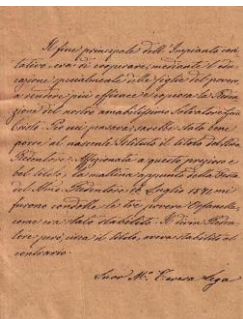 Il fine principale dell' Impianto
era di cooperare, mediante l'
specialmente delle figlie del povero,
a rendere più efficace e copiosa la Reden
zione del nostro amabilissimo Salvatore Gesù
Cristo
porre al nascente Istituto il titolo del
Redentore. Affezionata a questo prezioso e
bel titolo, la mattina appunto della Festa
del Redentore Luglio mi
furono condotte le tre povere Orfanelle,
come era stato stabilito. Il divin Reden
tore però, aveva stabilito al
contrario.
Suor Mª Teresa